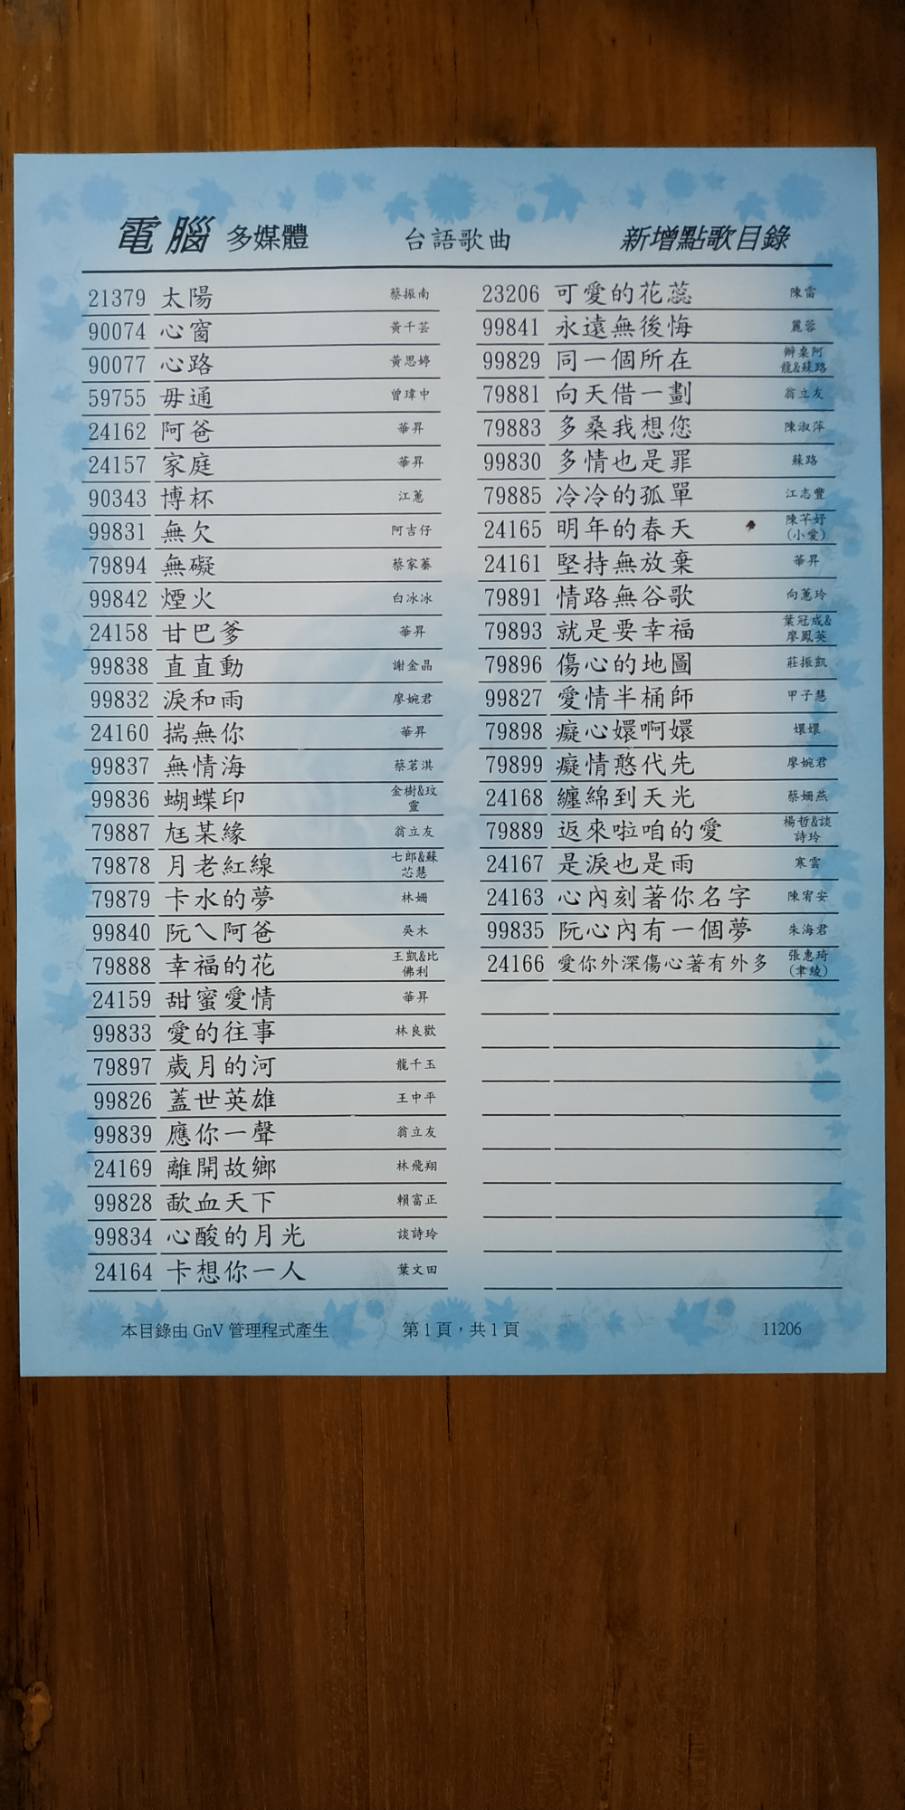 電腦 多媒體 台語歌曲 新增點歌目錄
21379 太陽 蔡振南
90074 心窗 黃千芸
90077 心路 黃思婷
59755 毋通 曾瑋中
24162 阿爸 華昇
24157 家庭 華昇
90343 博杯 江蕙
99831 無欠 阿吉仔
79894 無礙 蔡家蓁
99842 煙火 白冰冰
24158 甘巴爹 華昇
99838 直直動 謝金晶
99832 淚和雨 廖婉君
24160 揣無你 華昇
99837 無情海 蔡茗淇
99836 蝴蝶印 金樹&玟靈
79887 尪某緣 翁立友
79878 月老紅線 七郎&蘇芯慧
79879 卡水的夢 林姍
99840 阮ㄟ阿爸 吳木
79888 幸福的花 王凱&比佛利
24159 甜蜜愛情 華昇
99833 愛的往事 林良歡
79897 歲月的河 龍千玉
99826 蓋世英雄 王中平
99839 應你一聲 翁立友
24169 離開故鄉 林飛翔
99828 歃血天下 賴富正
99834 心酸的月光 談詩玲
24164 卡想你一人 葉文田
23206 可愛的花蕊 陳雷
99841 永遠無後悔 麗蓉
99829 同一個所在 辦桌阿龍&蘇路
79881 向天借一劃 翁立友
79883 多桑我想您 陳淑萍
99830 多情也是罪 蘇路
79885 冷冷的孤單 江志豐
24165 明年的春天 陳芊妤(小愛)
24161 堅持無放棄 華昇
79891 情路無谷歌 向蕙玲
79893 就是要幸福 葉冠成&廖鳳英
79896 傷心的地圖 莊振凱
99827 愛情半桶師 甲子慧
79898 癡心嬛啊嬛 嬛嬛
79899 癡情憨代先 廖婉君
24168 纏綿到天光 蔡姍燕
79889 返來啦咱的愛 楊哲&談詩玲
24167 是淚也是雨 寒雲
24163 心內刻著你名字 陳宥安
99835 阮心內有一個夢 朱海君
24166 愛你外深傷心著有外多 張惠琦(聿綾)
本目錄由 GnV 管理程式產生 第1頁，共1頁 11206